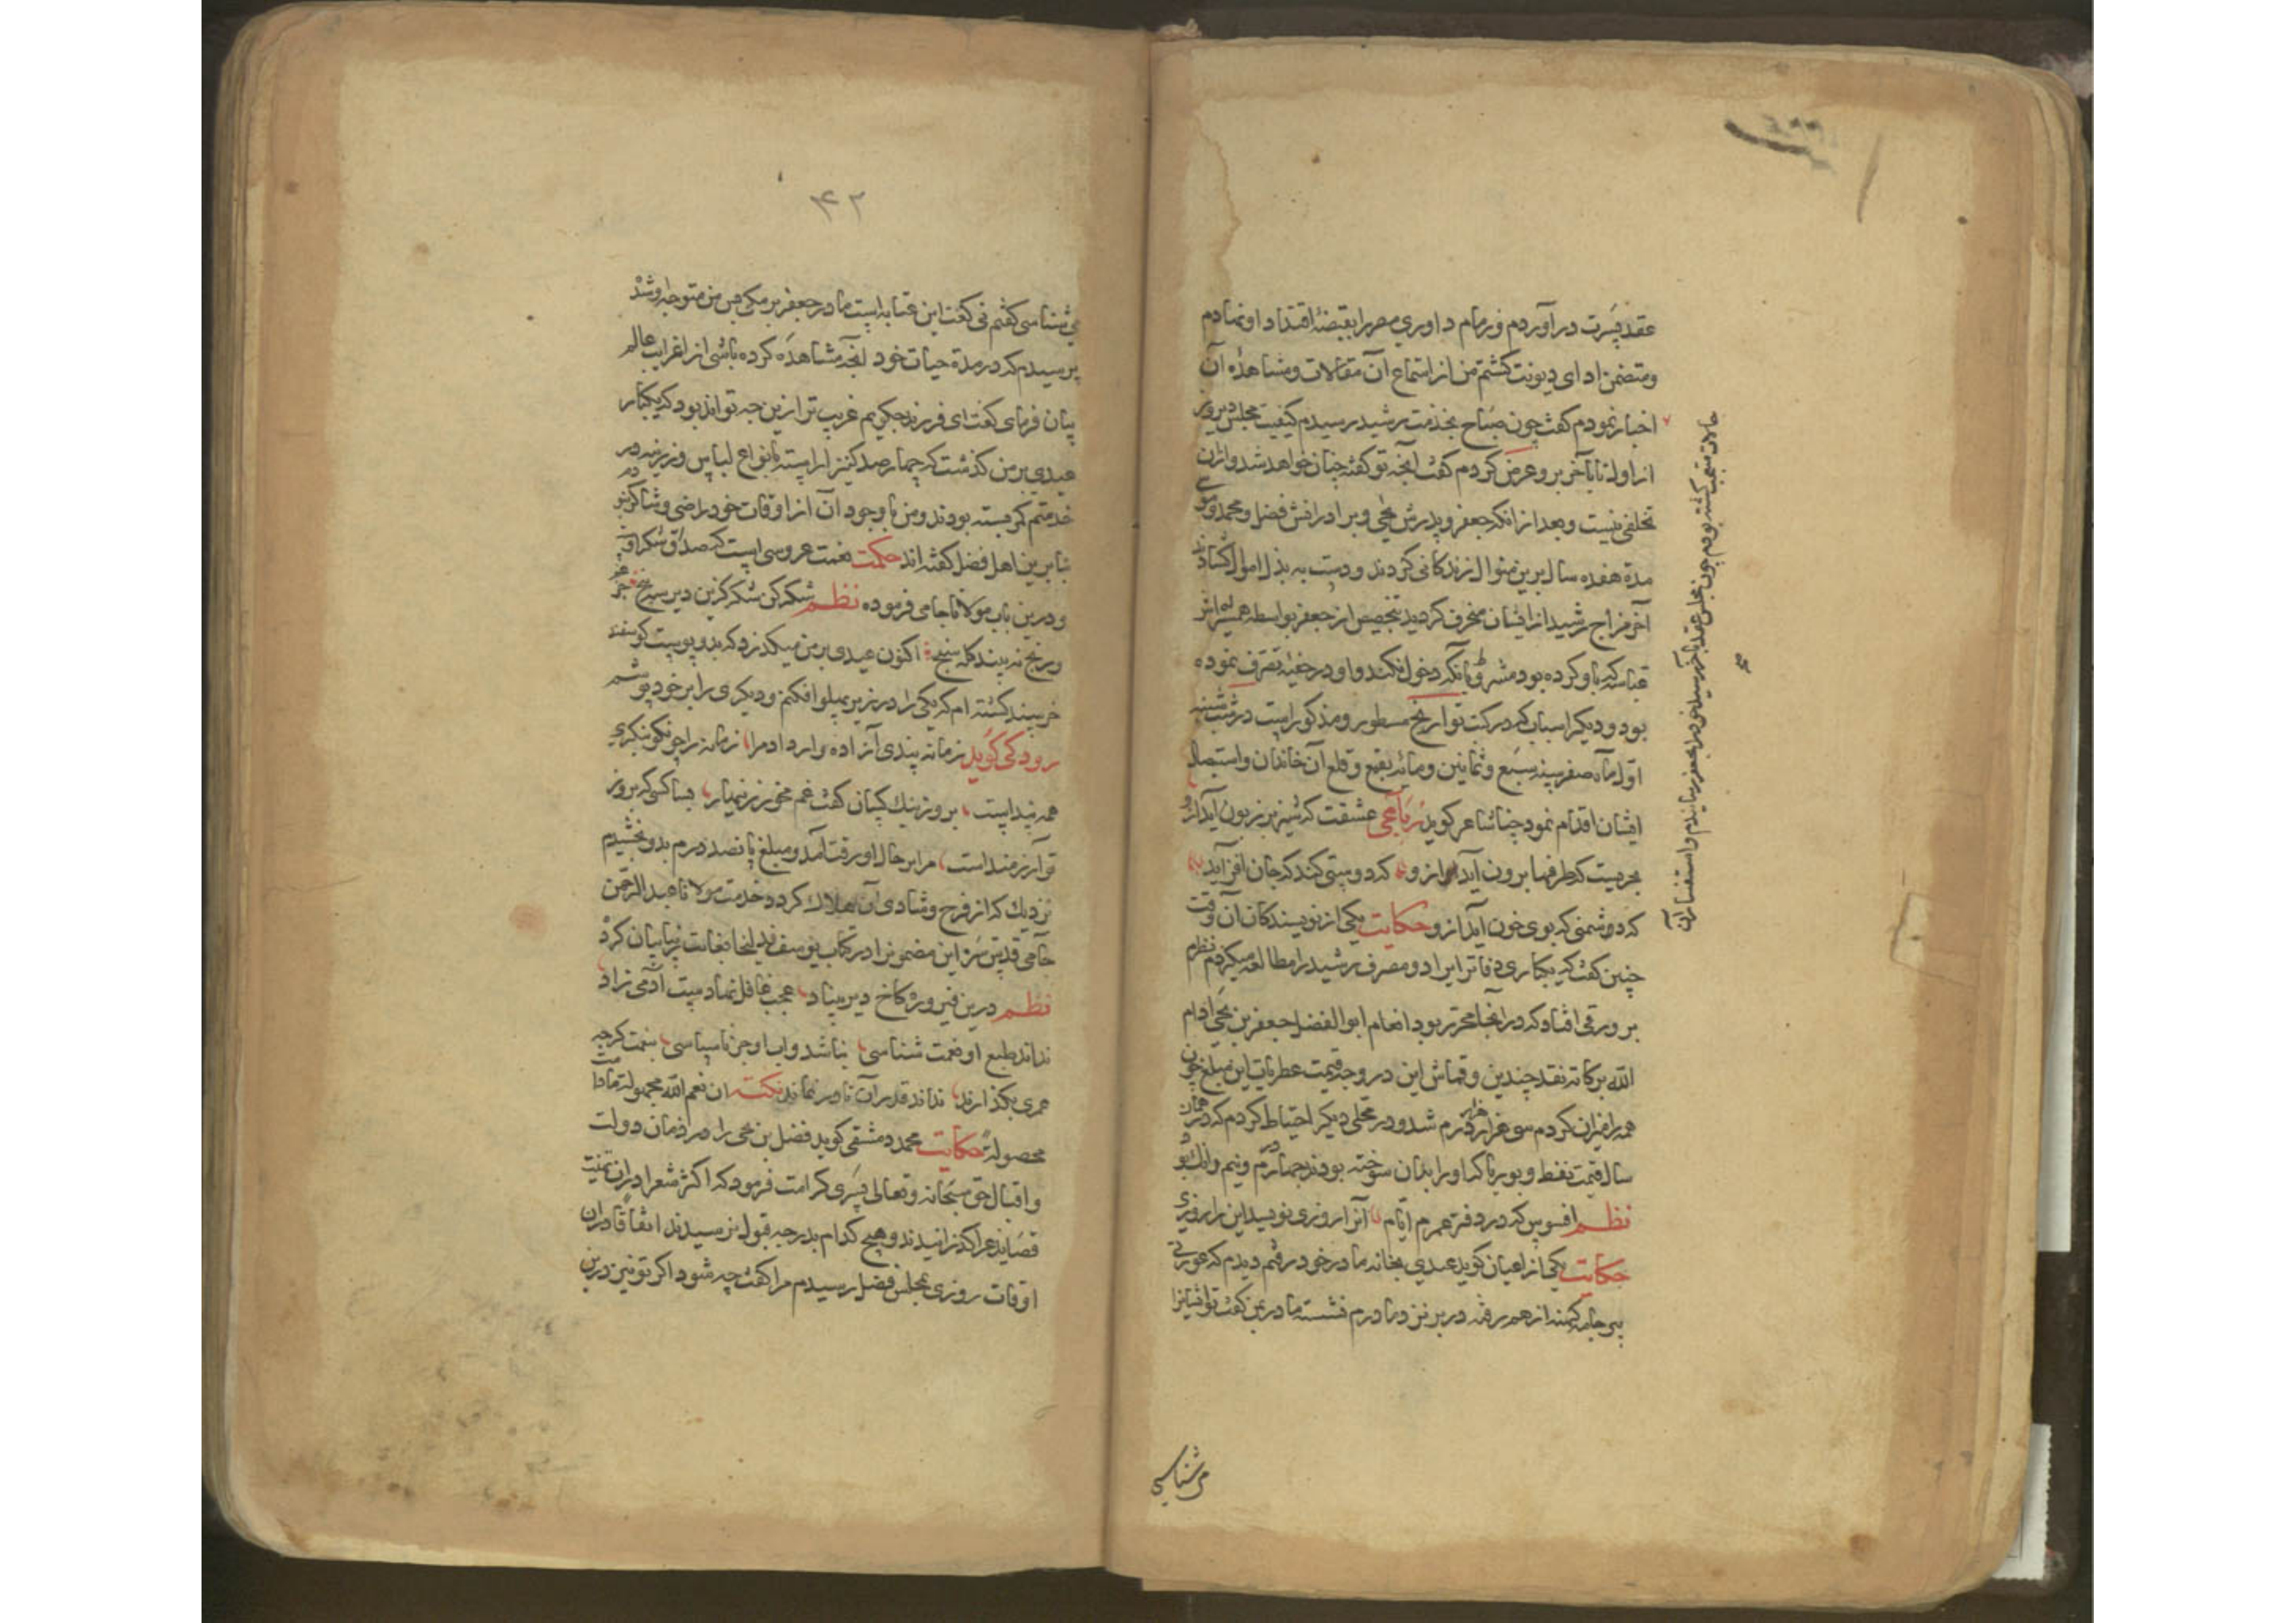 عقد پسرت در آوردم و زمام داوری مصر را بقبضهٔ اقتدار او نهادم
و متضمن ادای دیونت گشتم من از استماع آن مقالات و مشاهدهٔ آن
اخبار نمودم گفت چون صباح بخدمت رشید رسیدم کیفیت مجلس دیروز
از اول تا بآخر برو عرض کردم گفت آنچه تو گفتهٔ چنان خواهد شد و ازان
تخلفی نیست و بعد از آنکه جعفر و پدرش یحیی و برادرانش فضل و محمد و موسی
مدة هفده سال برین منوال زندگانی کردند و دست به بذل اموال گشادند
آخر مزاج رشید از ایشان منحرف گردید بتخصیص از جعفر بواسطه همشیره‌اش
عباسه که باو کرده بود مشروط بآنکه دخول نکند و او در خفیه تصرف نموده
بود و دیگر اسباب که در کتب تواریخ مسطور و مذکور است در شب شنبه
اول ماه صفر سنه سبع و ثمانین و مائه بقمع و قلع آن خاندان و استیصال
ایشان اقدام نمود چنانکه شاعر گوید رباعی عشقت که شیر نر زبون آید ازو
بحریست که طرفها برون آید ازو گه دوستی کند که جان افزاید
گه دشمنی که بوی خون آید ازو حکایت یکی از نویسندکان آن وقت
چنین گفت که یکباری دفاتر ایراد و مصرف رشید را مطالعه میکردم نظرم
بر ورقی افتاد که در آنجا محرر بود انعام ابو الفضل جعفر بن یحیی ادام
الله برکاته نقد چندین و قماش این در وجه قیمت عطریات این مبلغ چون
همه را میزان کردم سی هزار هزار درم شد و در محلی دیگر احتیاط کردم که در همان
سال قیمت نفط و بوریا که او را بدان سوخته بودند چهار درم و نیم و دانگ بود
نظم افسوس که در دفتر عمرم ایام آنرا روزی نویسد این را روزی
حکایت یکی از اعیان گوید عیدی بخانه مادر خود رفتم دیدم که عورتی
پیر جامه کهنه از هم رفته در بر نزد مادرم نشسته مادر بمن گفت تو ایشانرا
می شناسی
حالات متعجب گشته بودم چون مجلس عقد بآخر رسید خود را بجعفر رسانیدم و استفسار آن
صح
۴۲
می شناسی گفتم نی گفت این عتابه است مادر جعفر برمکی پس من متوجه او شدم
پرسیدم که در مدة حیات خود آنچه مشاهده کرده باشی از غرایب عالم
بیان فرمای گفت ای فرزند چگویم غریب‌تر ازین چه تواند بود که یکبار
عیدی بر من گذشت که چهارصد کنیز آراسته بانواع لباس و زیور در
خدمتم کمر بسته بودند و من با وجود آن از اوقات خود راضی و شاکر نبودم
بنابرین اهل فضل گفته‌اند حکمت نعمت عروسی است که صداق شکر اوست
و درین باب مولانا جامی فرموده نظم شکر کن شکر کزین دیر سپنج جز
و رنج نه بیند گله سنج اکنون عیدی بر من میگذرد که بدو پوست گوسفند
خرسند گشته‌ام که یکی را در زیر پهلو افکنم و دیگری را بر خود پوشم
رودکی گوید زمانه پندی آزاده وار داد مرا زمانه را چو نکو بنگری
همه پند است بروز نیک کسان گفت غم مخور زنهار بسا کسی که بروز
تو آرزومند است مرا بر حال او رقت آمد و مبلغ پانصد درم بدو بخشیدم
نزدیک که از فرح و شادی آن هلاک گردد خدمت مولانا عبد الرحمن
جامی قدس سره این مضمون را در کتاب یوسف زلیخا بغایت زیبا بیان کرد
نظم درین فیروزه کاخ دیر بنیاد عجب غافل نهادست آدمی زاد
نداند طبع او نعمت شناسی نباشد داب او جز ناسپاسی بنعمت گرچه
عمری بگذراند نداند قدر آن تا در نماند نکته ان نعم الله مجهولة ما دامت
محصولة حکایت محمد دمشقی گوید فضل بن یحیی را در زمان دولت
و اقبال حق سبحانه و تعالی پسری کرامت فرمود که اکثر شعرا در آن تهنیت
قصاید غرا گذرانیدند و هیچ کدام بدرجه قبول نرسیدند اتفاقا در آن
اوقات روزی بمجلس فضل رسیدم مرا گفت چه شود اگر تو نیز درین